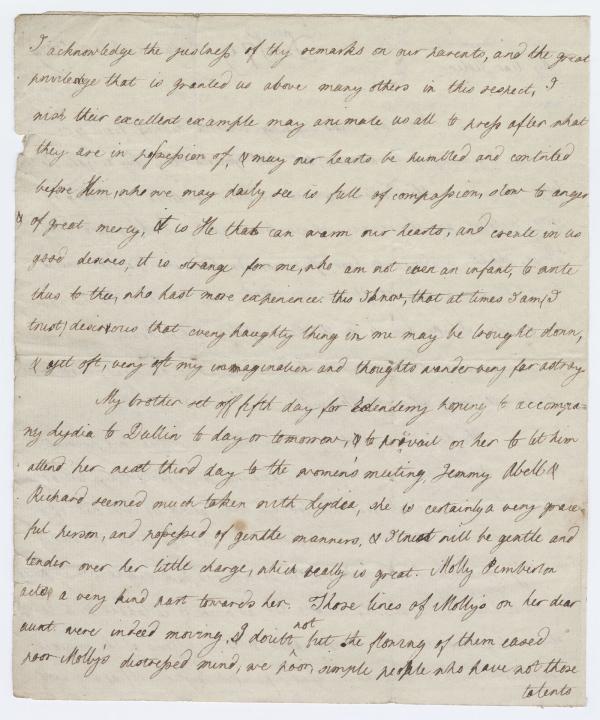 I acknowledge the justness of thy remarks on our parents, and the great
priviledge that is granted us above many others in this respect, I
wish their excellent example may animate us all to press after what
they are in possession of, & may our hearts be humbled and contrited
before Him, who we may daily see is full of compassion, slow to anger
& of great mercy, it is He that can warm our hearts, and create in us
good desires, it is strange for me, who am not even an infant, to write
thus to thee, who hast more experience this I know, that at times I am (I
trust) desirous that every haughty thing in me may be brought down,
& yet oft, very oft my immagination and thoughts wander very far astray
My brother set off fifth day for Edenderry hoping to accompa=
ny Lydia to Dublin to day or tomorrow, & to prevail on her to let him
attend her next third day to the women's meeting, Jemmy Abell &
Richard seemed much taken with Lydia, she is certainly a very grace
ful person, and possessed of gentle manners, & I trust will be gentle and
tender over her little charge, which really is great. Molly Pemberton
acts a very kind part towards her. Those lines of Molly's on her dear
aunt were indeed moving, I doubt not but the flowing of them eased
poor Molly's distressed mind, we poor, simple people who have not those
talents